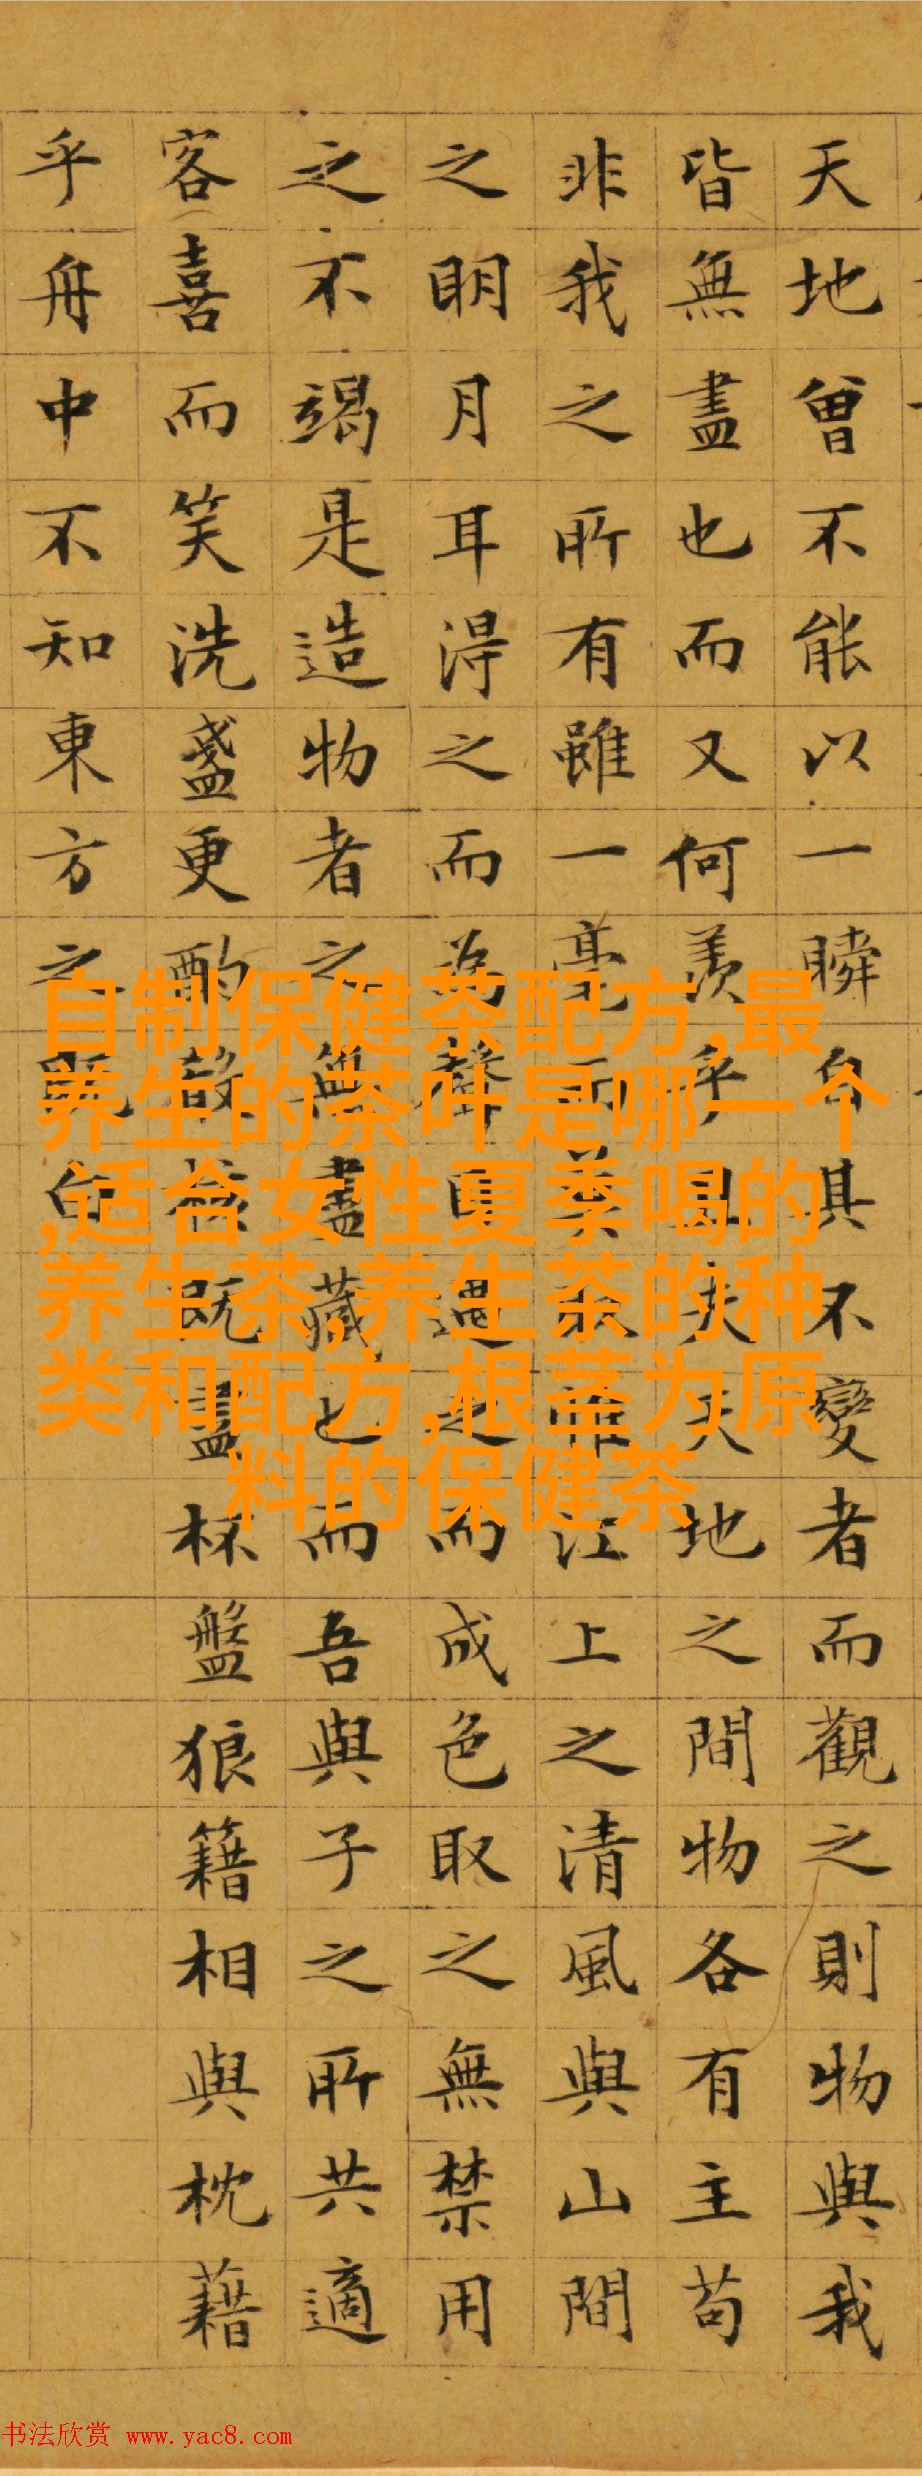 天地曾不能以一瞬自其不變者而觀之則物與我
皆無盡也而又何羨乎且夫天地之間物各有主苟
非我之所有雖一毫而莫取惟江上之清風與山間
之明月耳得之而為聲目遇之而成色取之無禁用
之不竭是造物者之無盡藏也而吾與子之所共適
客喜而笑洗盞更酌殽核既盡杯盤狼籍相與枕藉
乎舟中不知東方之既白
自制保健茶配方,最
养生的茶叶是哪一个
,适合女性夏季喝的
养生茶,养生茶的种
类和配方,根茎为原
料的保健茶
书法欣赏 www.yac8.com